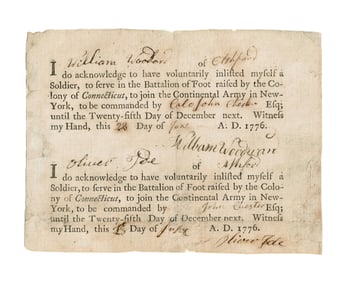 I William Woodard of Ashford
do acknowledge to have voluntarily inlisted myself a
Soldier, to serve in the Battalion of Foot raised by the Co-
lony of Connecticut, to join the Continental Army in New-
York, to be commanded by Colo John Chester Esq;
until the Twenty-fifth Day of December next. Witness
my Hand, this 28 Day of June A. D. 1776.
William Woodward
I Oliver Ide of Ashford
do acknowledge to have voluntarily inlisted myself a
Soldier, to serve in the Battalion of Foot raised by the Colo-
ny of Connecticut, to join the Continental Army in New-
York, to be commanded by John Chester Esq;
until the Twenty-fifth Day of December next. Witness
my Hand, this Day of July A. D. 1776.
Oliver Ide